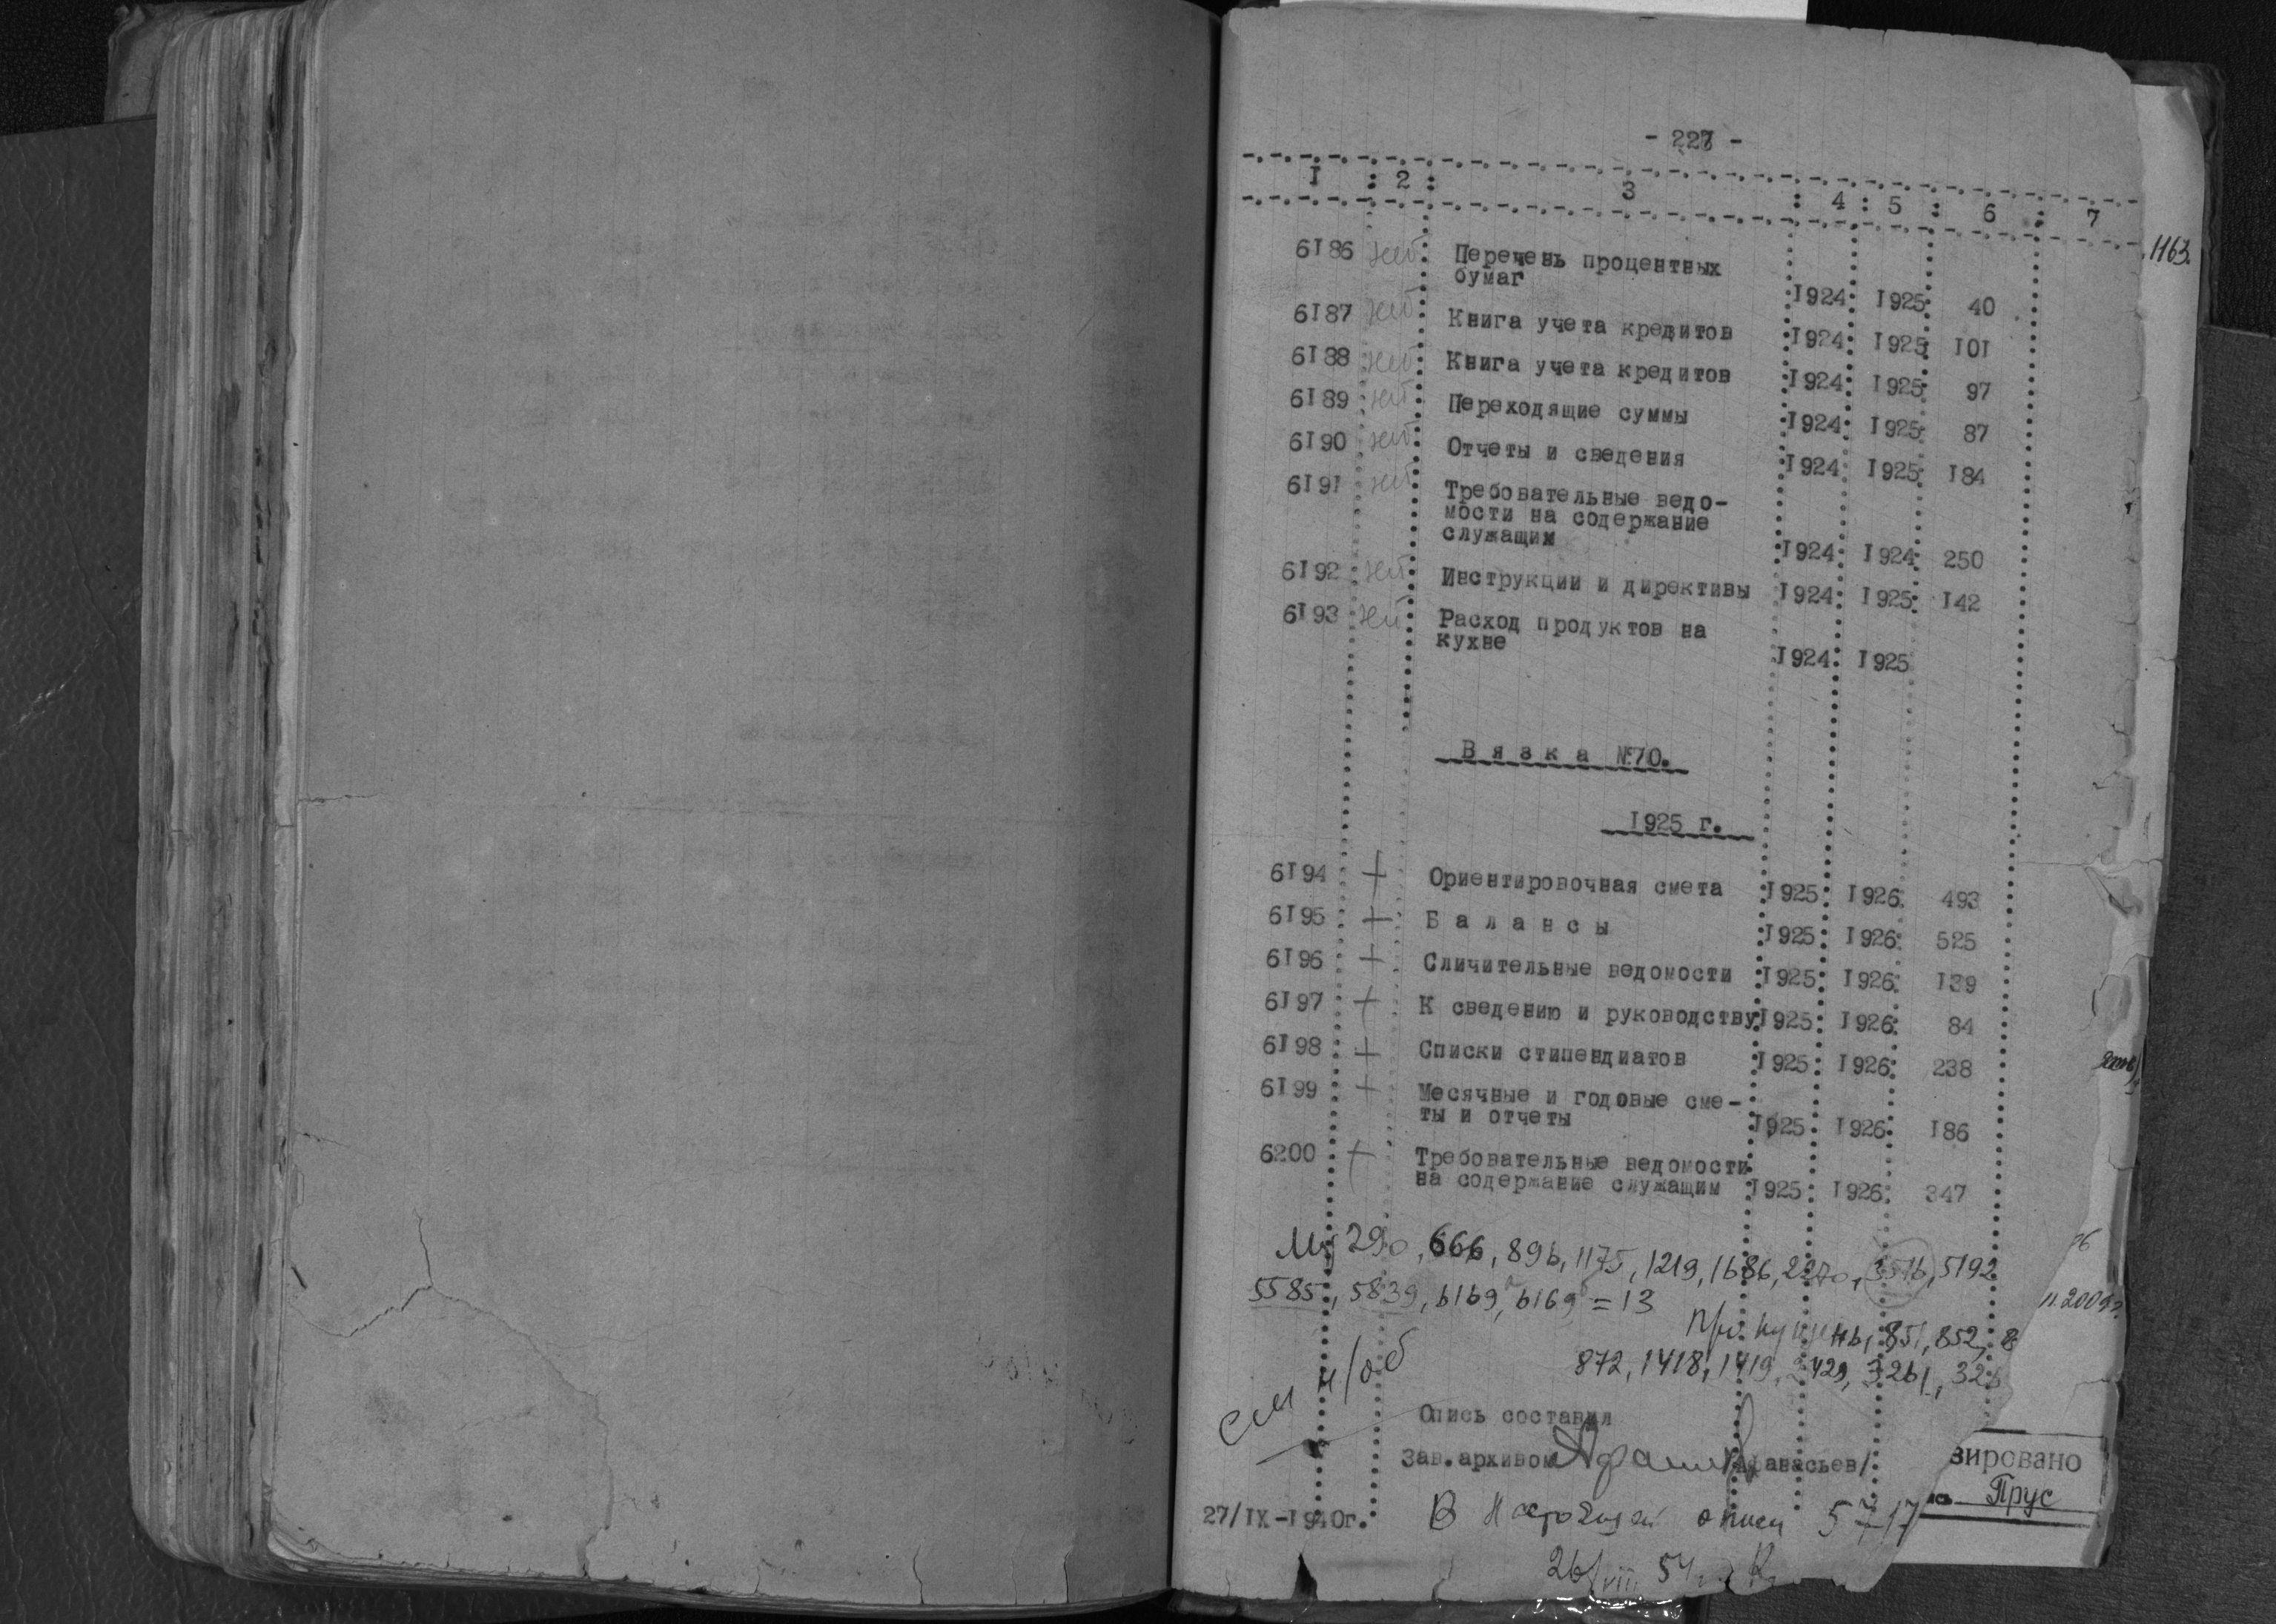 - 227 -
I : 2 : 3 : 4 : 5 : 6 : 7
1163.
6I86 Перечень процентных
бумаг I924 I925 40
6I87 Книга учета кредитов I924 I925 I0I
6I88 Книга учета кредитов I924 I925 97
6I89 Переходящие суммы I924 I925 87
6I90 Отчеты и сведения I924 I925 I84
6I9I Требовательные ведо-
мости на содержание
служащим I924 I924 250
6I92 Инструкции и директивы I924 I925 I42
6I93 Расход продуктов на
кухне I924 I925
В я з к а №70.
I925 г.
6I94 + Ориентировочная смета I925 I926 493
6I95 + Б а л а н с ы I925 I926 525
6I96 + Сличительные ведомости I925 I926 I39
6I97 + К сведению и руководству I925 I926 84
6I98 + Списки стипендиатов I925 I926 238
6I99 + Месячные и годовые сме-
ты и отчеты I925 I926 I86
6200 + Требовательные ведомости
на содержание служащим I925 I926 347
290, 666, 896, 1175, 1219, 1686, 2270, 3516, 5192
5585, 5839, 6169а, 6169б = 13
851, 852, 8
872, 1418, 1419, 2429, 3261, 326
11.2009г.
см н/об
Опись составил
Зав.архивом Афанасьев/
зировано
Прус
27/IX-I940г.
В настоящей описи 5717
26/VIII 54г.